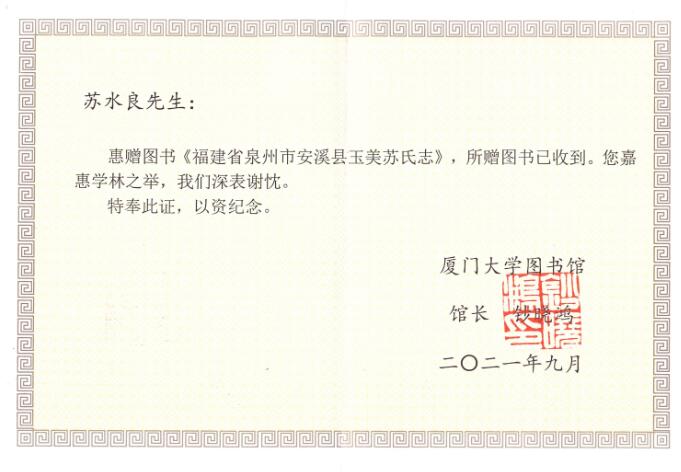 苏水良先生：
惠赠图书《福建省泉州市安溪县玉美苏氏志》，所赠图书已收到。您嘉
惠学林之举，我们深表谢忱。
特奉此证，以资纪念。
厦门大学图书馆
馆长 钞晓鸿
二〇二一年九月